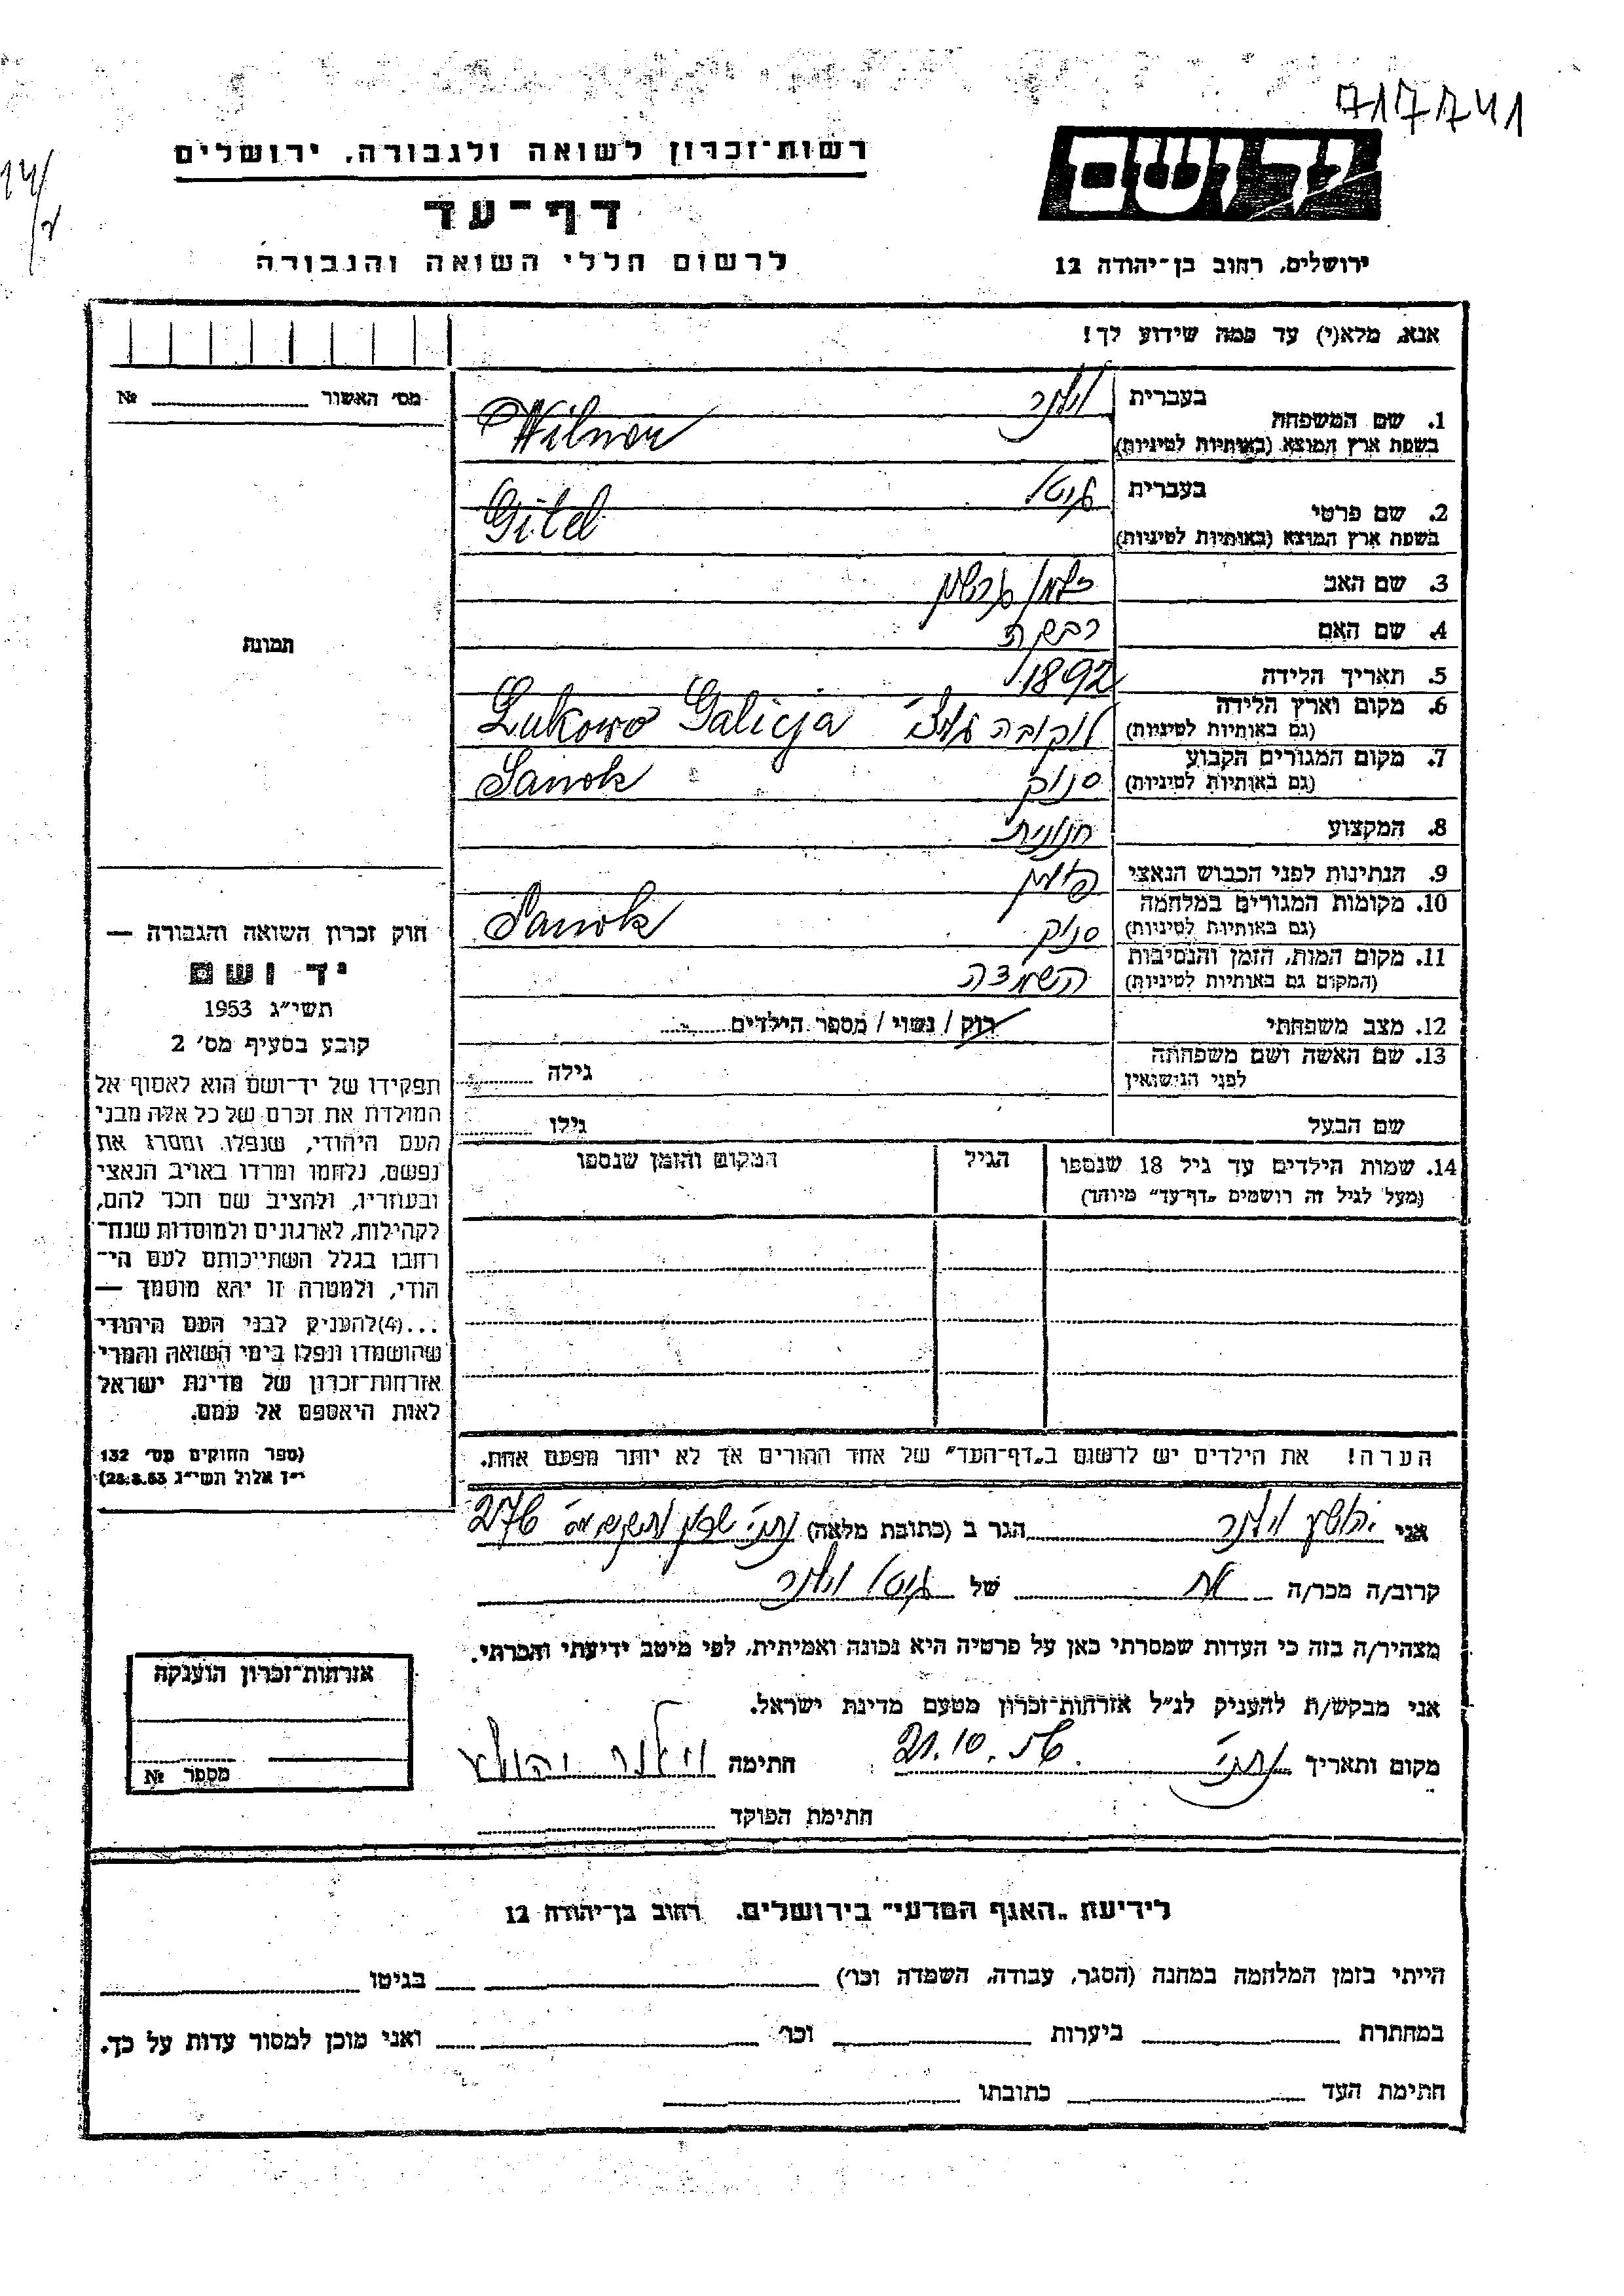 717741
14/
רשות־זכרון לשואה ולגבורה, ירושלים
דף־עד
לרשום חללי השואה והגבורה
יד ושם
ירושלים, רחוב בן־יהודה 12
אנא, מלא(י) עד כמה שידוע לך!
מס׳ האשור № 
1. שם המשפחה בעברית וילנר
בשפת ארץ המוצא (באותיות לטיניות) Wilner
2. שם פרטי בעברית גיטל
בשפת ארץ המוצא (באותיות לטיניות) Gitel
3. שם האב זלמן
4. שם האם רבקה
5. תאריך הלידה 1892
6. מקום וארץ הלידה
(גם באותיות לטיניות) לוקובה Lukowo Galicja
7. מקום המגורים הקבוע
(גם באותיות לטיניות) סנוק Sanok
8. המקצוע חנונית
9. הנתינות לפני הכבוש הנאצי פולין
10. מקומות המגורים במלחמה
(גם באותיות לטיניות) סנוק Sanok
11. מקום המות, הזמן והנסיבות
(המקום גם באותיות לטיניות) השמדה
12. מצב משפחתי רוק / נשוי / מספר הילדים
13. שם האשה ושם משפחתה
לפני הנישואין גילה
שם הבעל גילו
14. שמות הילדים עד גיל 18 שנספו הגיל המקום והזמן שנספו
(מעל לגיל זה רושמים „דף־עד״ מיוחד)
הערה! את הילדים יש לרשום ב„דף־העד״ של אחד ההורים אך לא יותר מפעם אחת.
תמונה
חוק זכרון השואה והגבורה —
יד ושם
תשי״ג 1953
קובע בסעיף מס׳ 2
תפקידו של יד־ושם הוא לאסוף אל
המולדת את זכרם של כל אלה מבני
העם היהודי, שנפלו, ומסרו את
נפשם, נלחמו ומרדו באויב הנאצי
ובעוזריו, ולהציב שם וזכר להם,
לקהילות, לארגונים ולמוסדות שנח־
רבו בגלל השתייכותם לעם הי־
הודי, ולמטרה זו יהא מוסמך —
...(4)להעניק לבני העם היהודי
שהושמדו ונפלו בימי השואה והמרי
אזרחות־זכרון של מדינת ישראל
לאות היאספם אל עמם.
(ספר החוקים מס׳ 132
י״ד אלול תשי״ג 28.8.53)
אני יהושע וילנר הגר ב (כתובת מלאה) 276
קרוב/ה מכר/ה אח של גיטל וילנר
מצהיר/ה בזה כי העדות שמסרתי כאן על פרטיה היא נכונה ואמיתית, לפי מיטב ידיעתי והכרתי.
אני מבקש/ת להעניק לנ״ל אזרחות־זכרון מטעם מדינת ישראל.
מקום ותאריך נתני׳ 21.10.56 חתימה וילנר יהושע
חתימת הפוקד
אזרחות־זכרון הוענקה
מספר №
לידיעת „האגף המדעי״ בירושלים, רחוב בן־יהודה 12
הייתי בזמן המלחמה במחנה (הסגר, עבודה, השמדה וכו׳) בגיטו
במחתרת ביערות וכו׳ ואני מוכן למסור עדות על כך.
חתימת העד כתובתו